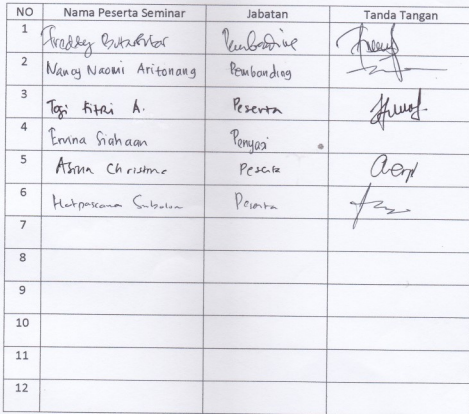 NO Nama Peserta Seminar Jabatan Tanda Tangan
1 Freddy Butarbutar Pembanding
2 Nancy Naomi Aritonang Pembanding
3 Togi Fitri A. Peserta
4 Ervina Siahaan Penyaji
5 Asima Christine Peserta
6 Peserta
7
8
9
10
11
12